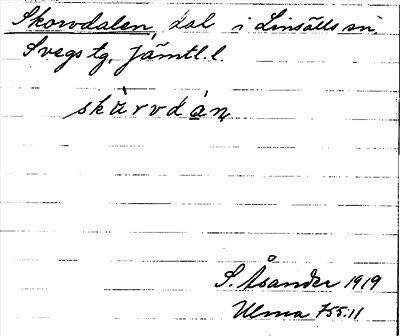 Skorvdalen, dal i Linsälls sn.
Svegs tg. Jämtl. l.
skùrvdán
S. Åsander 1919
Ulma 755:11